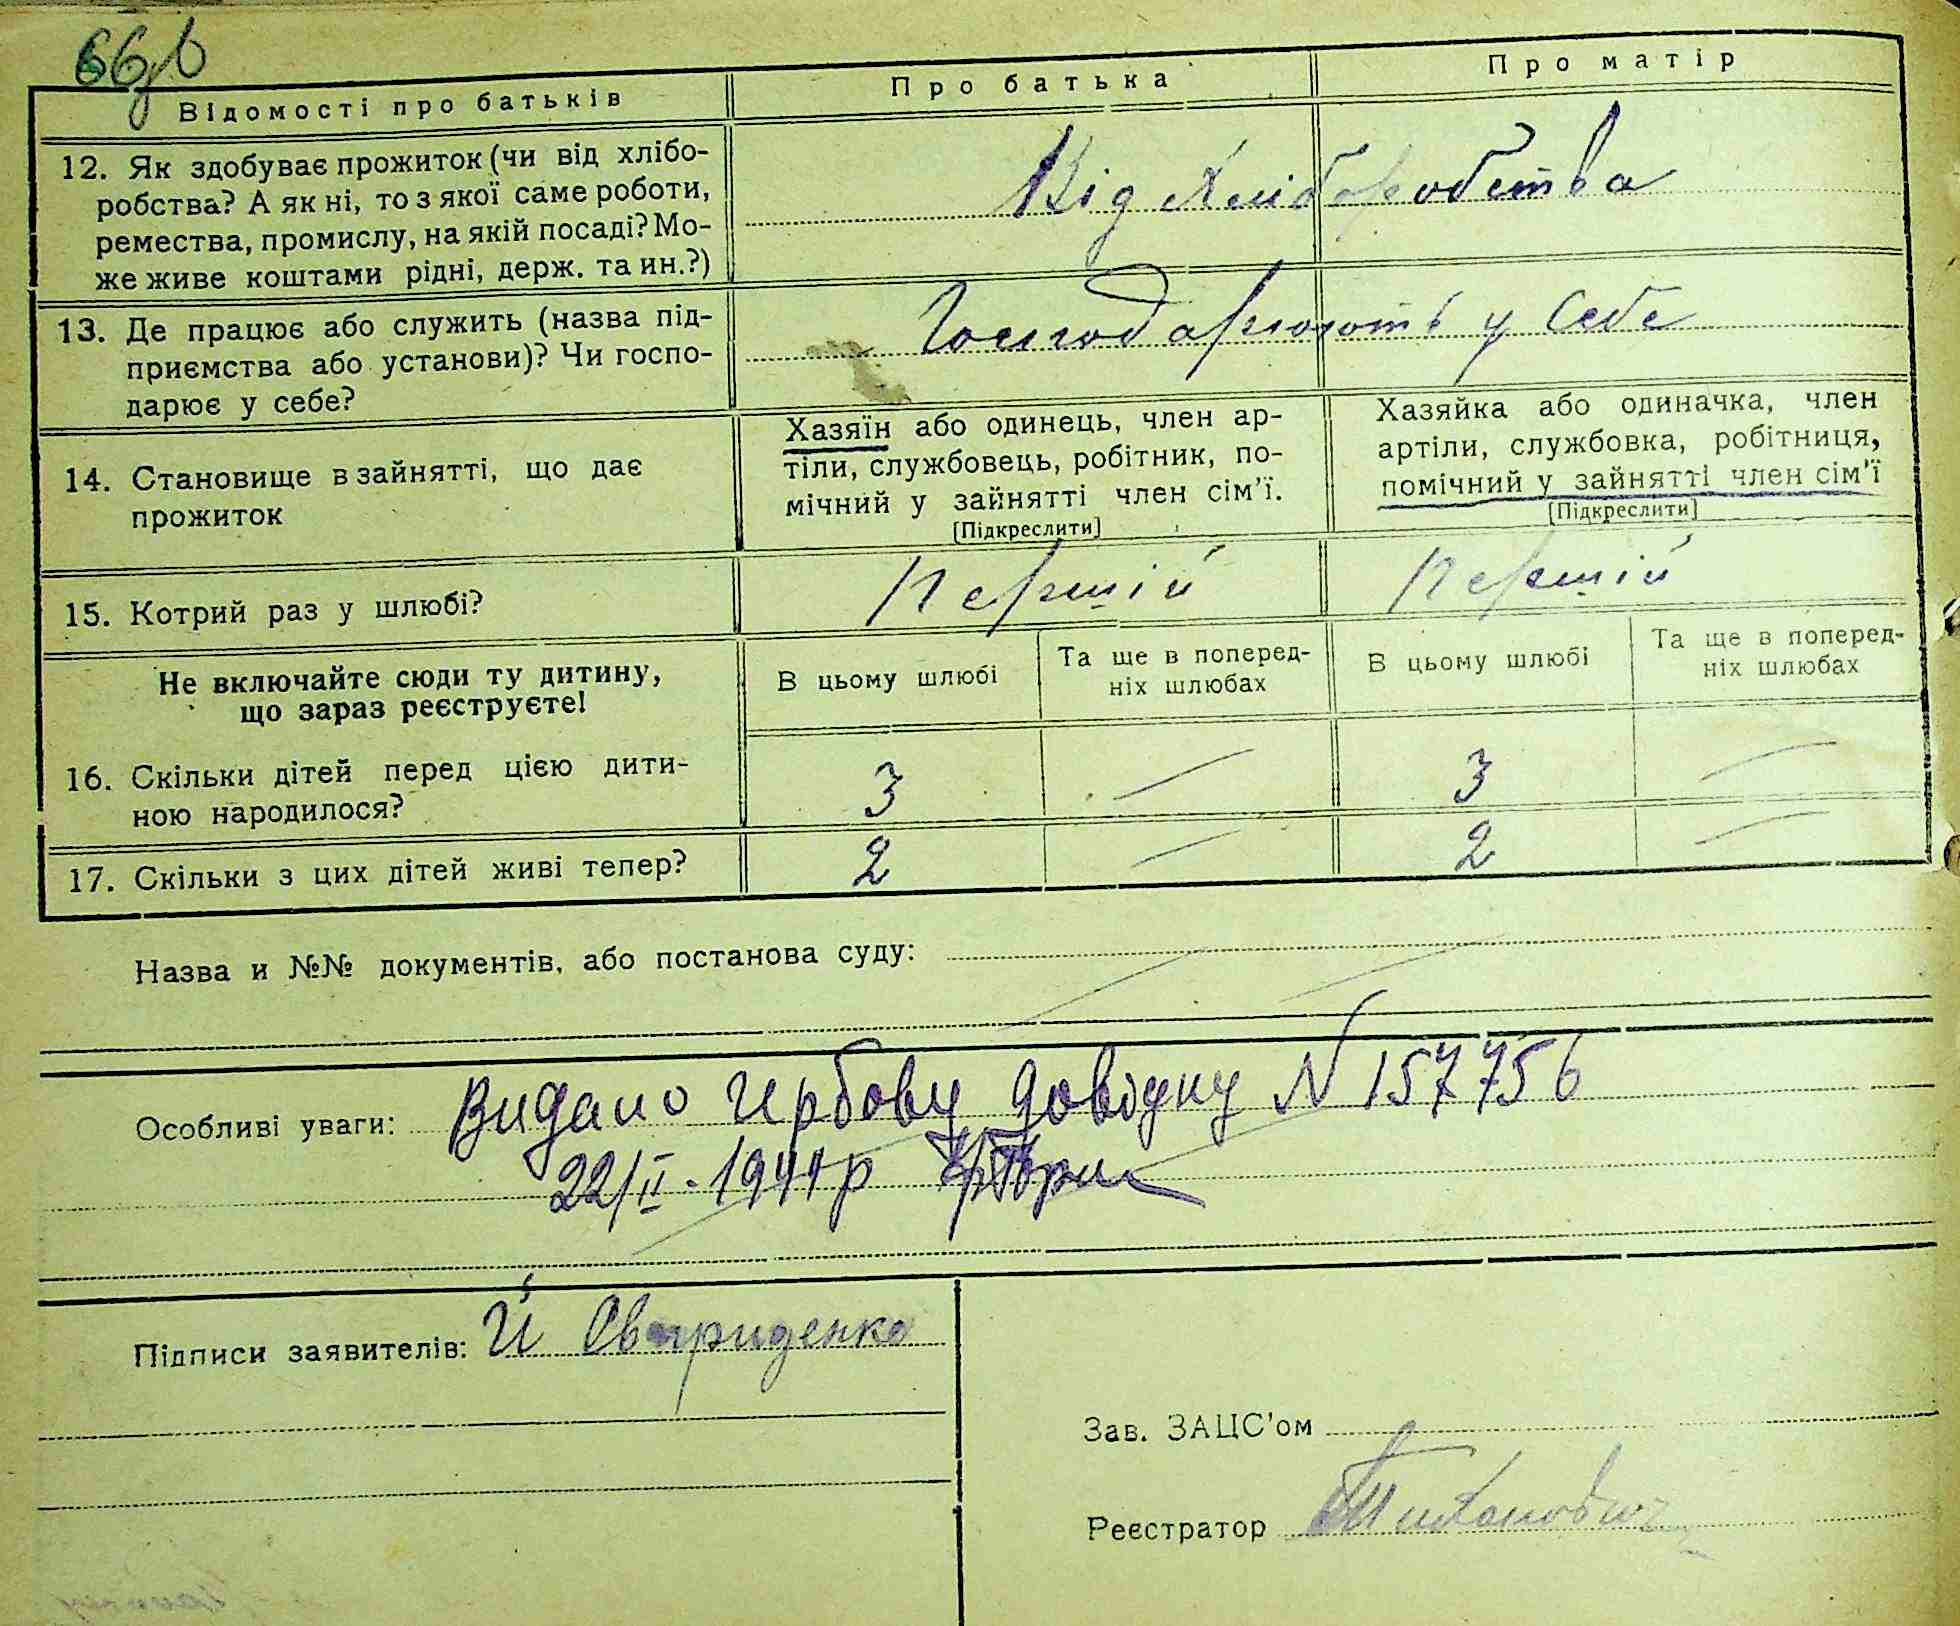 66
Відомості про батьків
Про батька
Про матір
12. Як здобуває прожиток (чи від хлібо-
робства? А як ні, то з якої саме роботи,
ремества, промислу, на якій посаді? Мо-
же живе коштами рідні, держ. та ин.?)
Від хліборобства
13. Де працює або служить (назва під-
приємства або установи)? Чи госпо-
дарює у себе?
Господарюють у себе
14. Становище в зайнятті, що дає
прожиток
Хазяїн або одинець, член ар-
тіли, службовець, робітник, по-
мічний у зайнятті член сім'ї.
[Підкреслити]
Хазяйка або одиначка, член
артіли, службовка, робітниця,
помічний у зайнятті член сім'ї
[Підкреслити]
15. Котрий раз у шлюбі?
Першій
Першій
Не включайте сюди ту дитину,
що зараз реєструєте!
В цьому шлюбі
Та ще в поперед-
ніх шлюбах
В цьому шлюбі
Та ще в поперед-
ніх шлюбах
16. Скільки дітей перед цією дити-
ною народилося?
3 — 3 —
17. Скільки з цих дітей живі тепер?
2 — 2 —
Назва и №№ документів, або постанова суду:
Особливі уваги: Видано гербову довідку N 157756
22/II-1941р
Підписи заявителів: Й Свириденко
Зав. ЗАЦС'ом
Реєстратор Тиханович